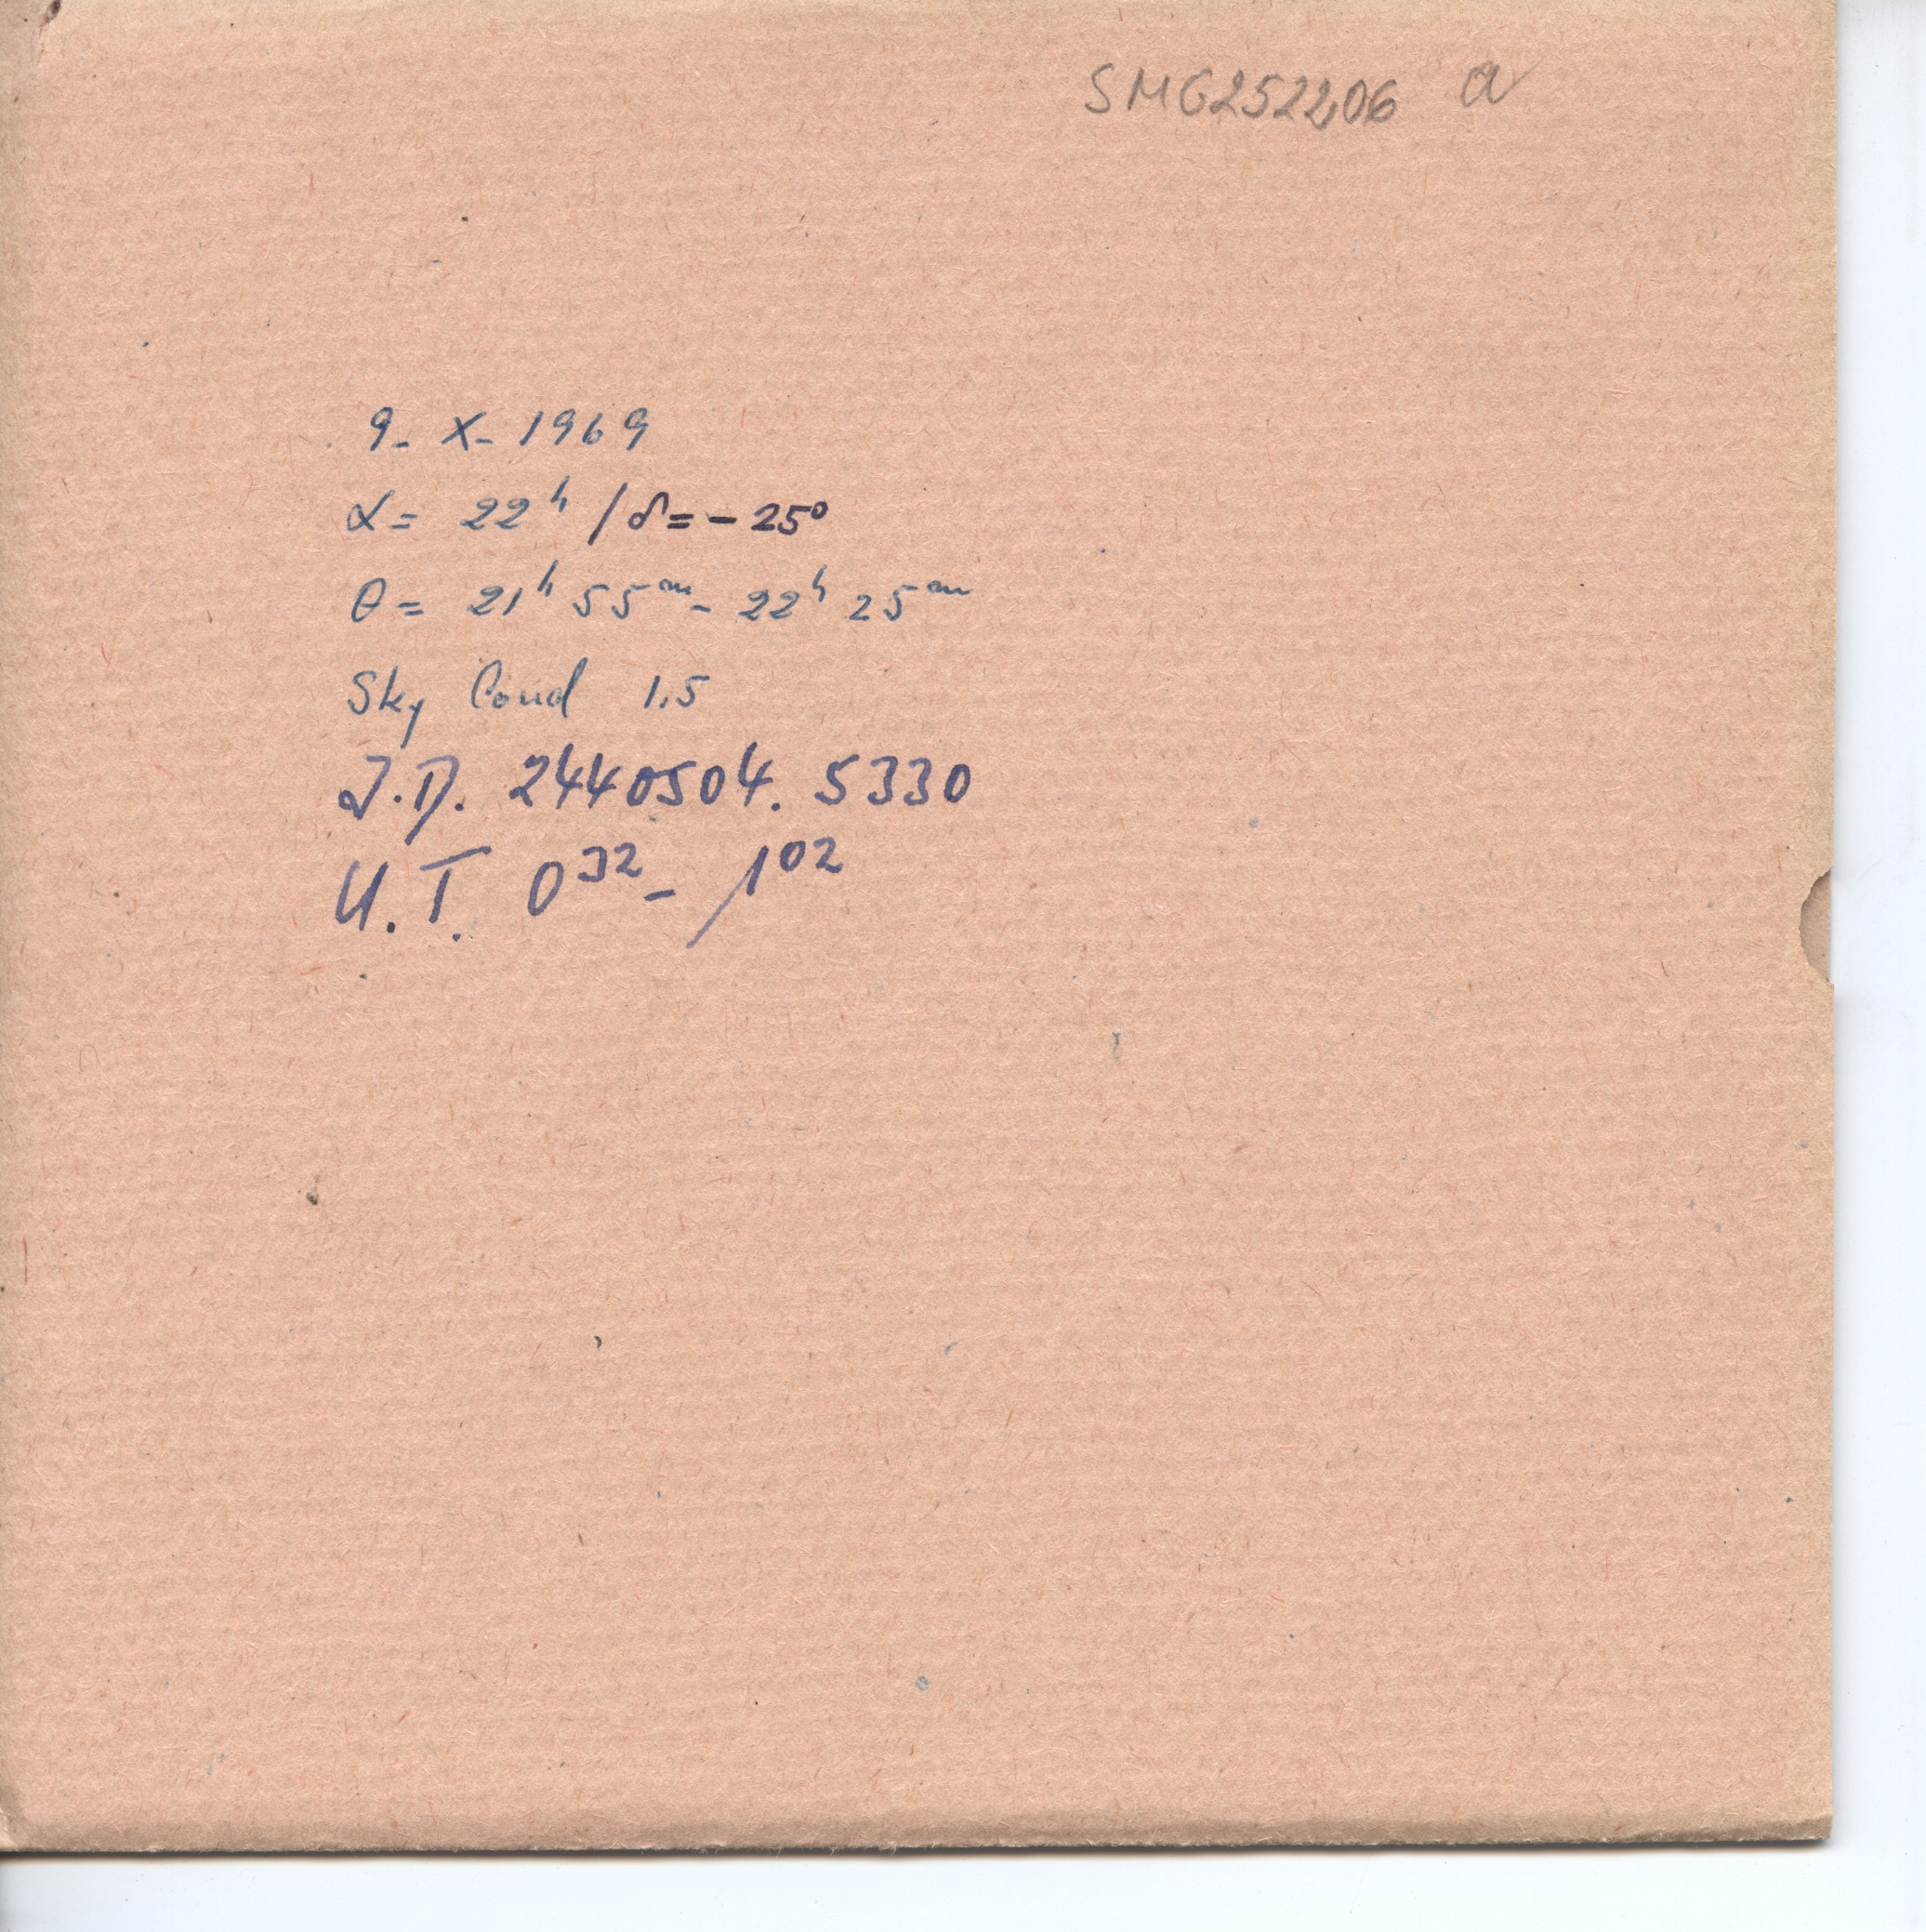 SMG252206 a
9- X- 1969
α= 22ʰ / δ= - 25°
θ= 21ʰ 55ᵐ - 22ʰ 25ᵐ
Sky Cond 1.5
J.D. 2440504. 5330
U.T. 0³² - 1⁰²